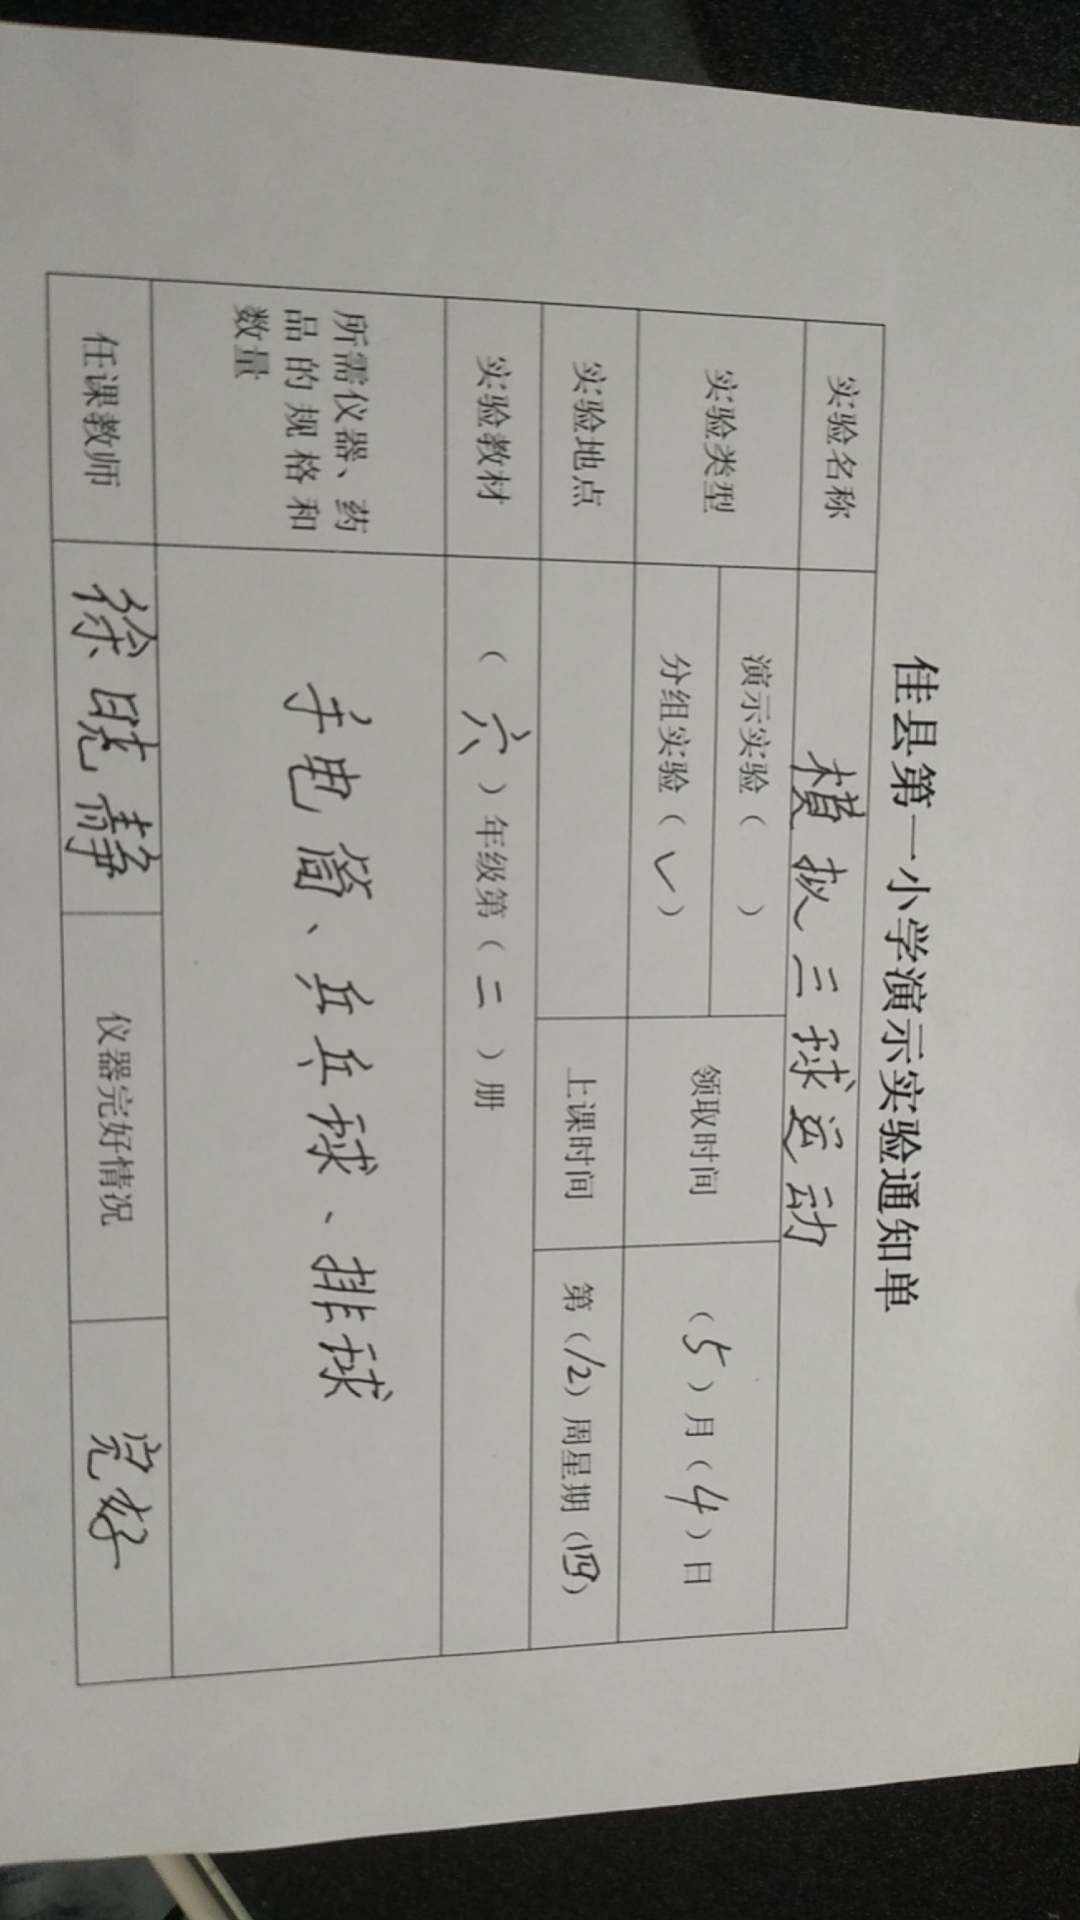 佳县第一小学演示实验通知单
实验名称 模拟三球运动
实验类型 演示实验（ ） 领取时间 （5）月（4）日
分组实验（✓）
实验地点 上课时间 第（12）周星期（四）
实验教材 （六）年级第（二）册
所需仪器、药
品的规格和
数量
手电筒、乒乓球、排球
任课教师 徐晓静 仪器完好情况 完好